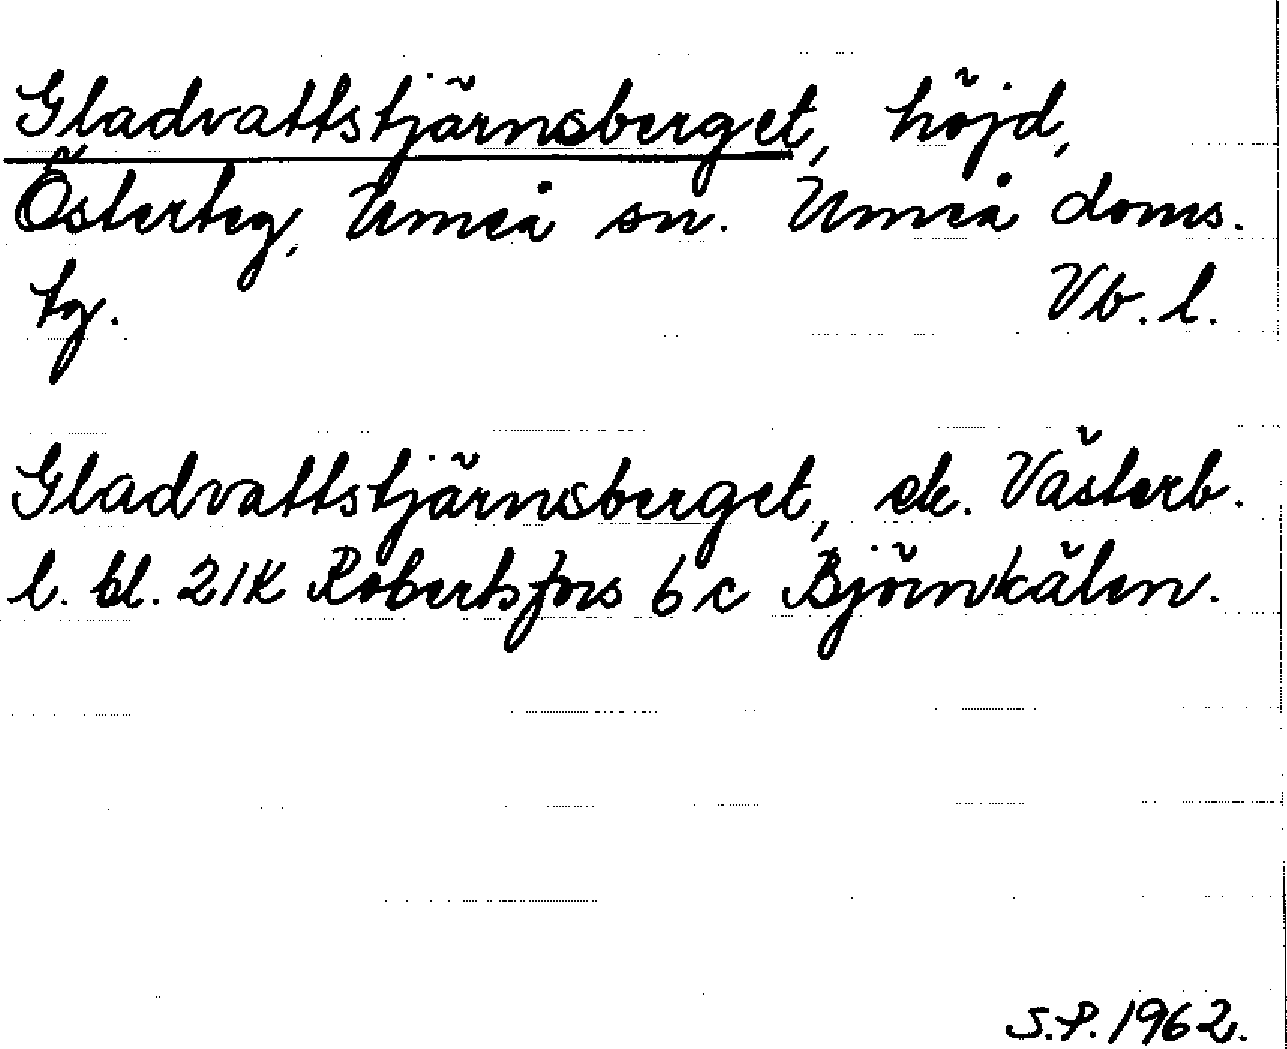 Gladvattstjärnsberget, höjd,
Österteg, Umeå sn. Umeå doms.
tg. Vb. l.
Gladvattstjärnsberget, ek. Västerb.
l. bl. 21K Robertsfors 6 c Björnkälen.
S.P. 1962.